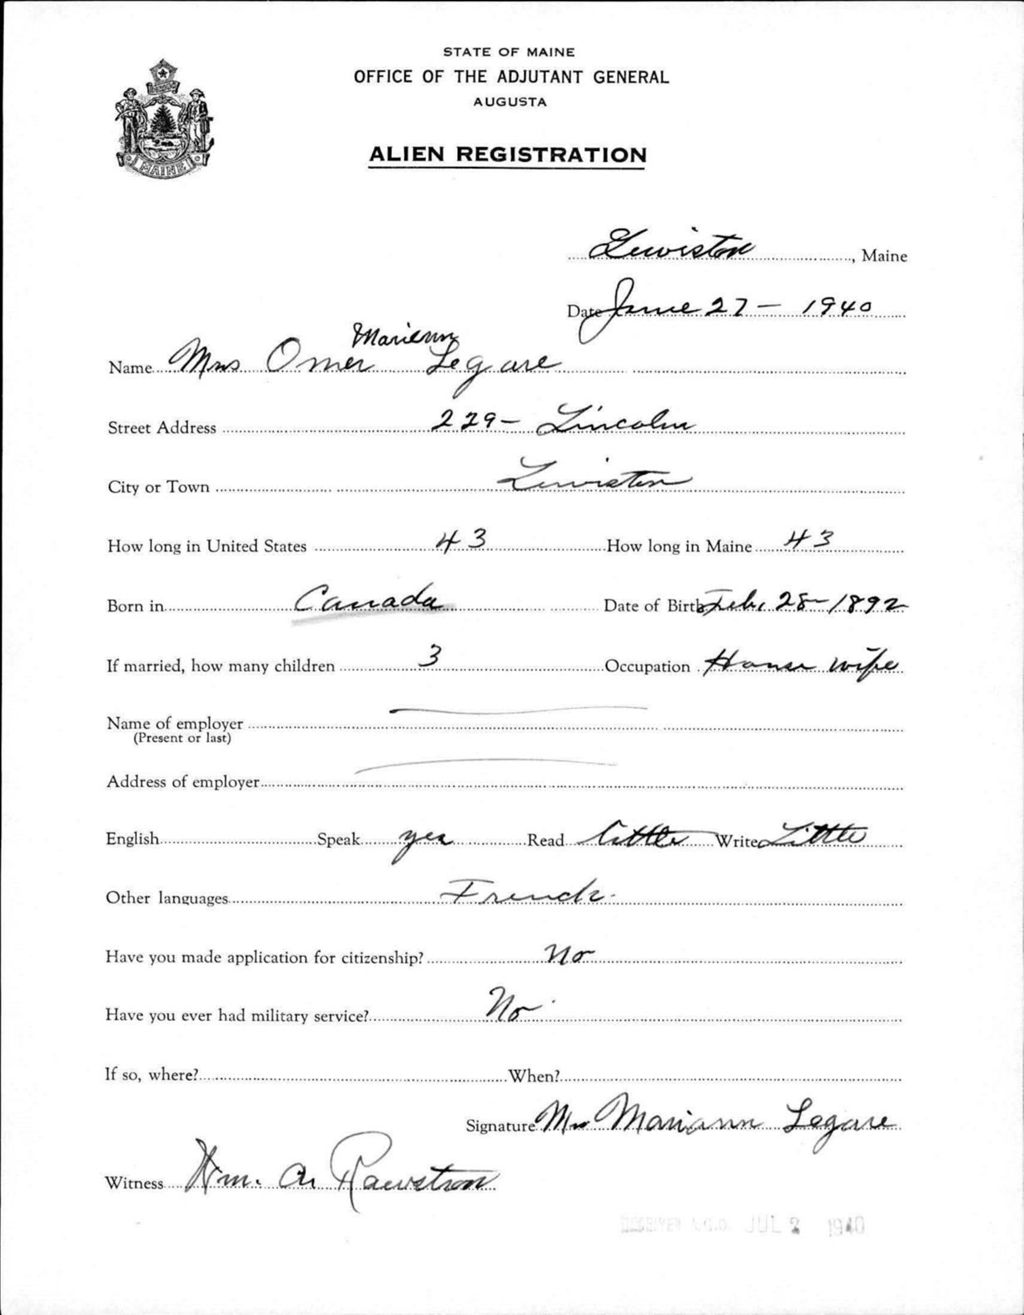 STATE OF MAINE
OFFICE OF THE ADJUTANT GENERAL
AUGUSTA
ALIEN REGISTRATION
MAINE
Lewiston, Maine
Date June 27 - 1940
Mariann
Name Mrs Omer Legare
Street Address 229 - Lincoln
City or Town Lewiston
How long in United States 43 How long in Maine 43
Born in Canada Date of Birth Feb. 28 - 1892
If married, how many children 3 Occupation House wife
Name of employer
(Present or last)
Address of employer
English Speak yes Read little Write Little
Other languages French
Have you made application for citizenship? No
Have you ever had military service? No
If so, where? When?
Signature Mrs Mariann Legare
Witness Wm. A. Rawstron
RECEIVED A.G.O. JUL 2 1940